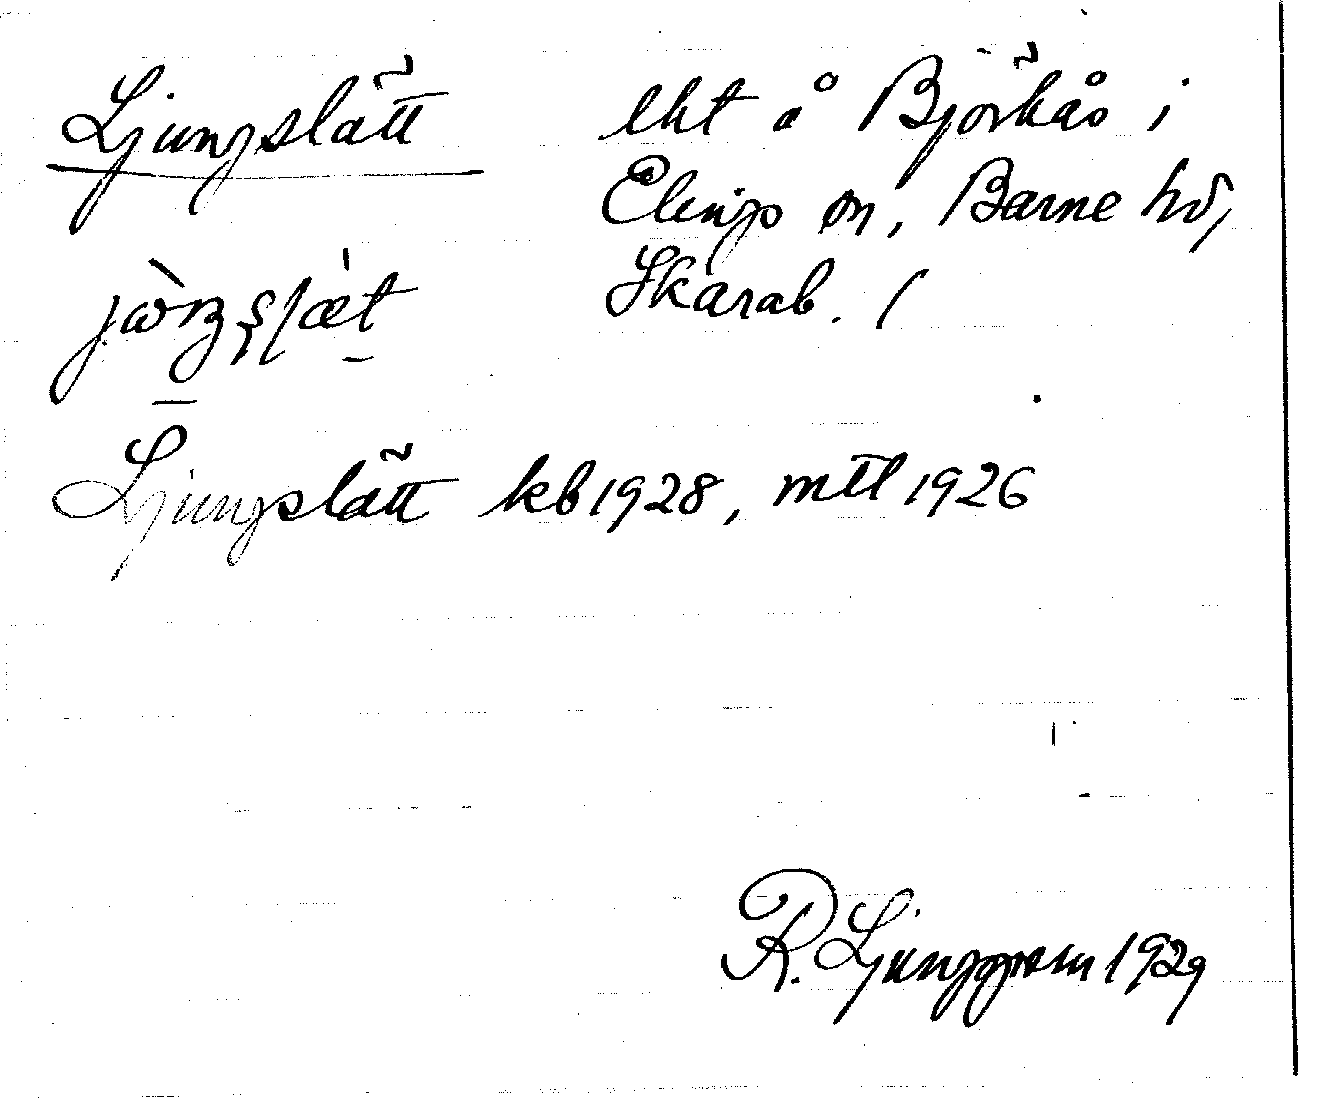 Ljungslätt
lht å Björkås i
Elings sn, Barne hd,
Skarab. l
Ljungslätt kb 1928, mtl 1926
R. Ljunggren 1929